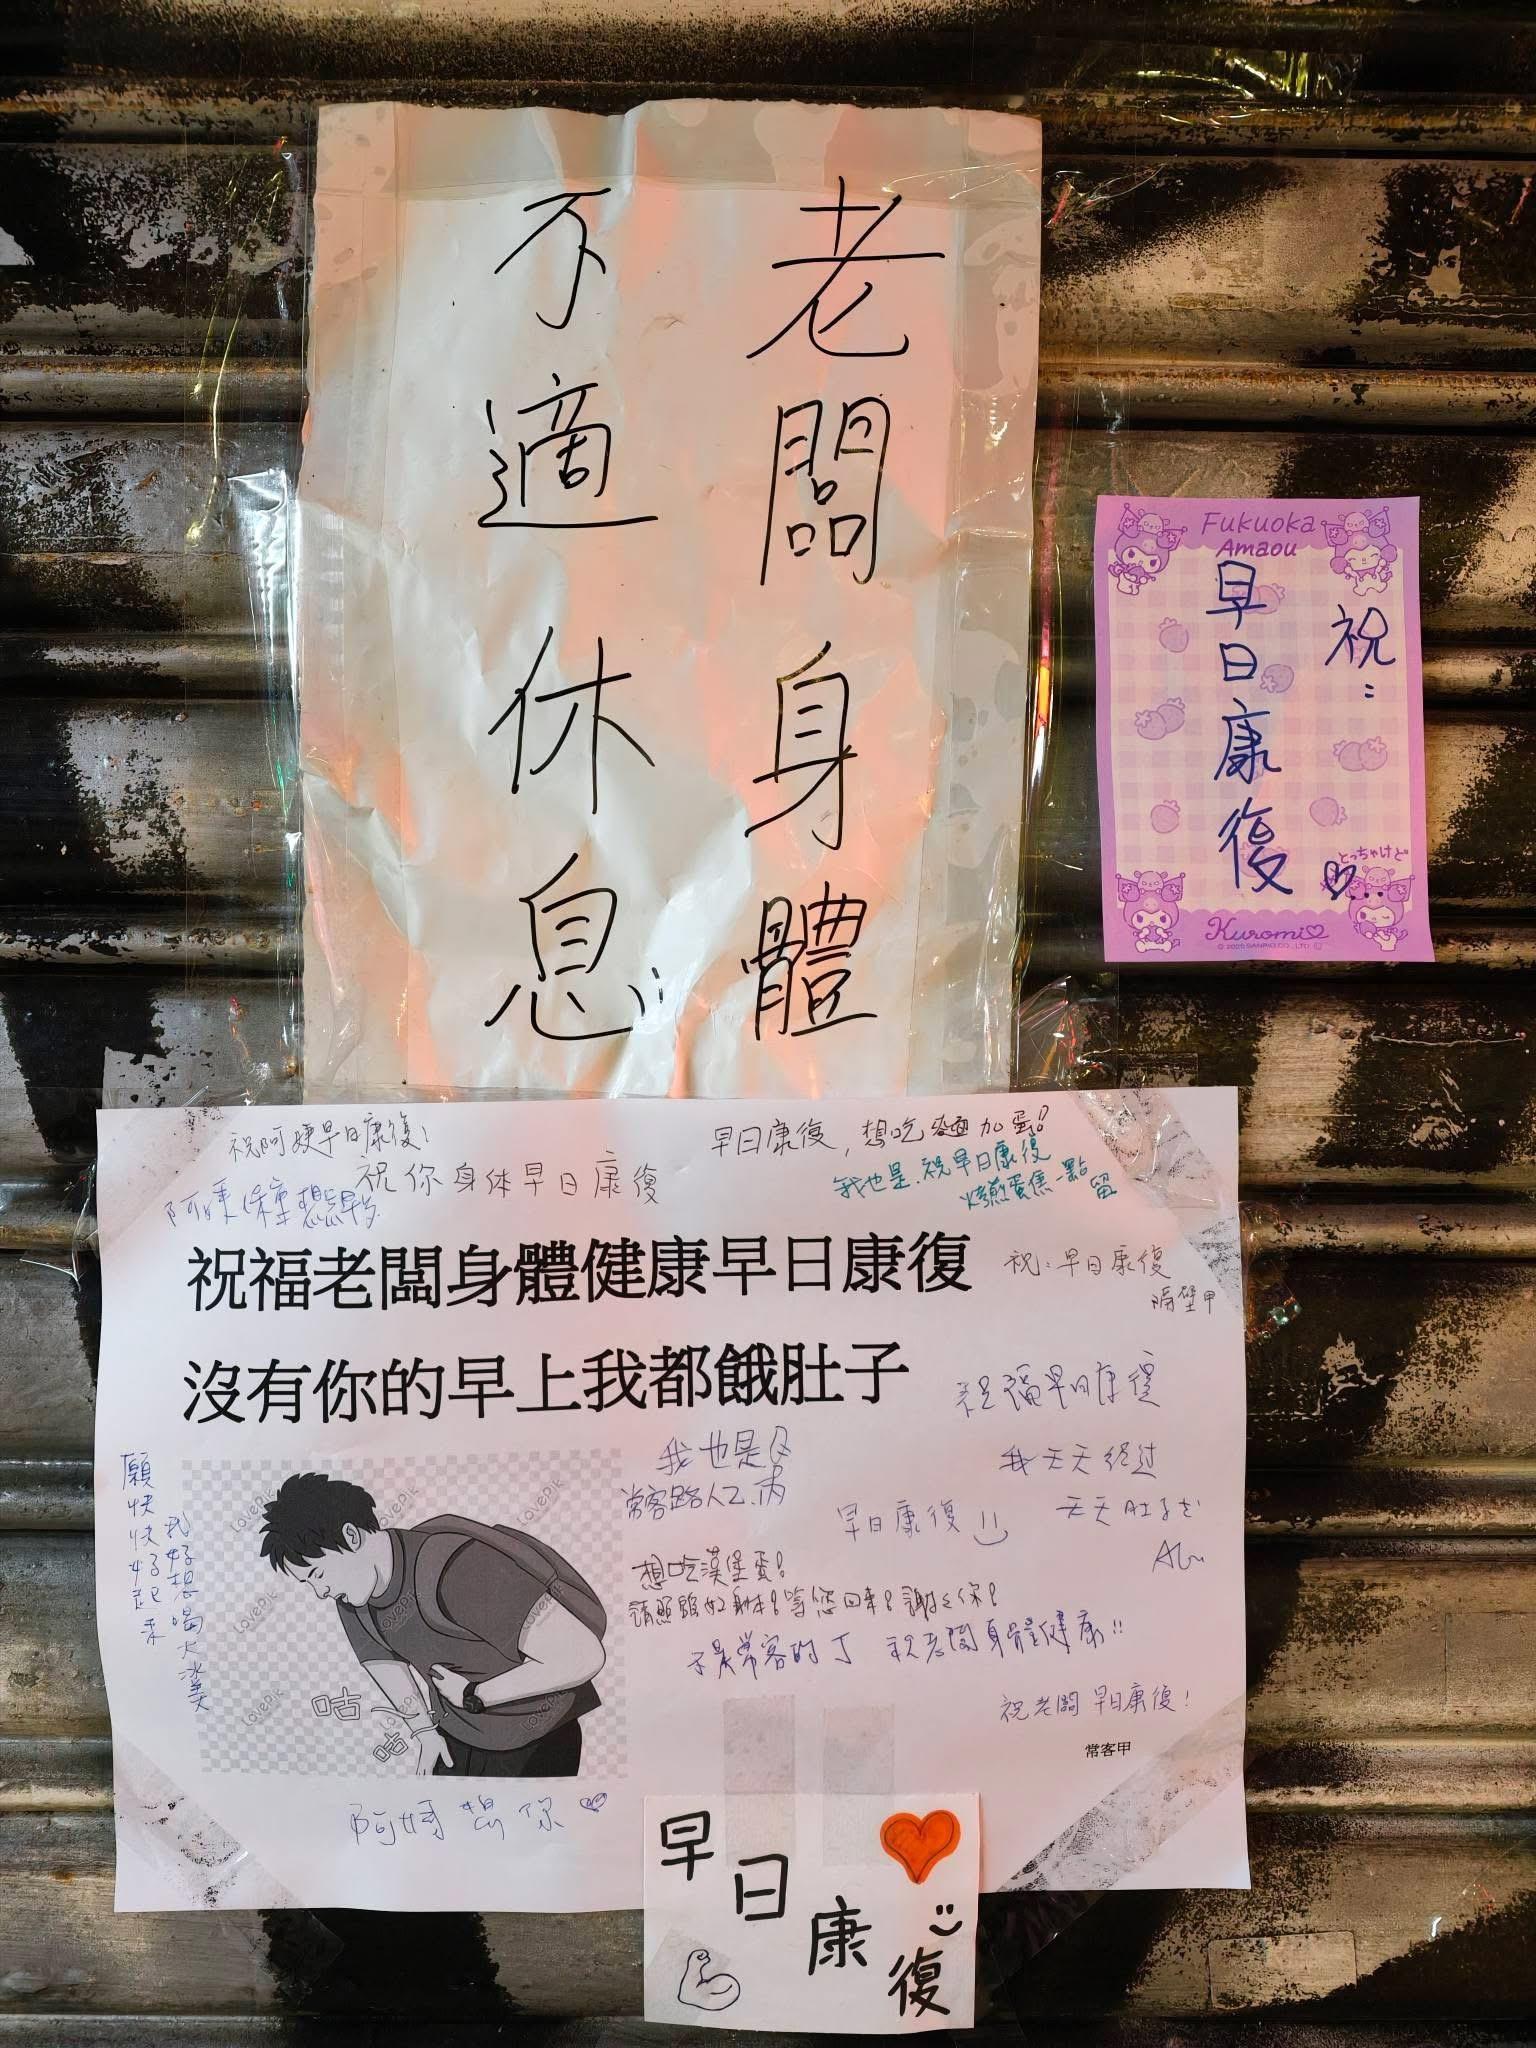 老闆身體
不適休息
Fukuoka
Amaou
祝：
早日康復
とっちゃけど
Kuromi♡
© 2025 SANRIO CO., LTD.
祝阿姨早日康復！
早日康復，想吃麵加蛋！
祝你身体早日康復
我也是，祝早日康復
阿姨保重
蛋焦一點
留
祝福老闆身體健康早日康復
祝：早日康復
隔壁甲
沒有你的早上我都餓肚子
祝福早日康復
我也是
常客路人乙、丙
我天天經过
天天肚子
早日康復
願快快好起來
我好想喝大冰美
LovePik
LovePik
LovePik
LovePik
LovePik
LovePik
想吃漢堡蛋！
請照顧好身体！等您回來！謝謝你！
不是常客的丁 祝老闆身體健康!!
咕
咕
祝老闆早日康復！
常客甲
阿姨想你
早日康復